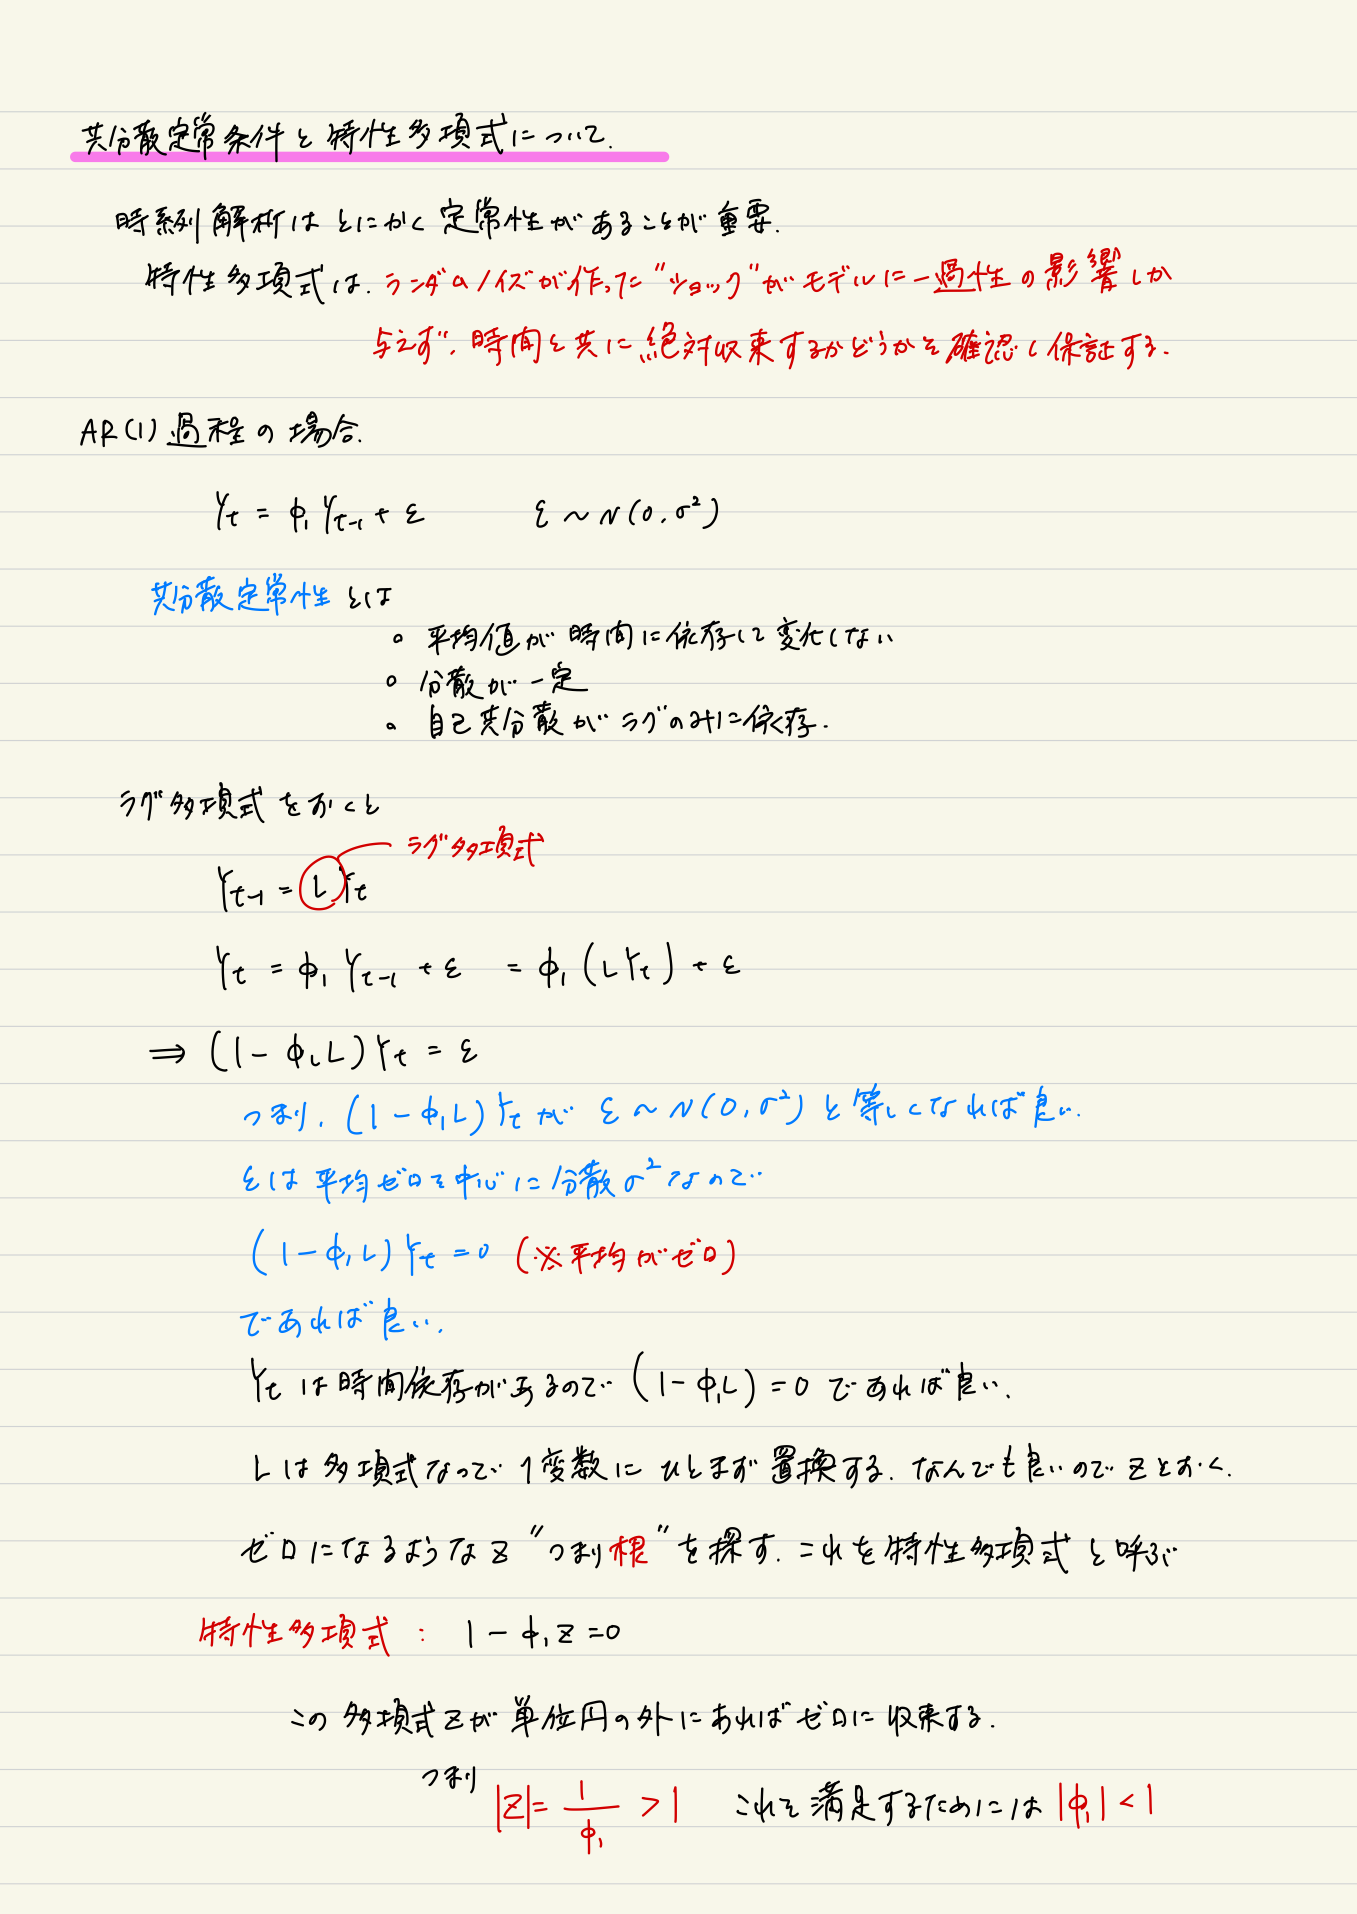 共分散定常条件と特性多項式について.
時系列解析はとにかく定常性があることが重要.
特性多項式は、ランダムノイズが作った"ショック"がモデルに一過性の影響しか
与えず、時間と共に絶対収束するかどうかを確認し保証する.
AR(1)過程の場合.
Yt = φ1 Yt-1 + ε　　ε ~ N(0, σ²)
共分散定常性とは
○ 平均値が時間に依存して変化しない
○ 分散が一定
○ 自己共分散がラグのみに依存.
ラグ多項式をおくと
ラグ多項式
Yt-1 = L Yt
Yt = φ1 Yt-1 + ε = φ1 (L Yt) + ε
⇒ (1 - φ1 L) Yt = ε
つまり、(1 - φ1 L) Yt が ε ~ N(0, σ²) と等しくなれば良い.
εは平均ゼロを中心に分散σ²なので
(1 - φ1 L) Yt = 0 (※平均がゼロ)
であれば良い.
Yt は時間依存があるので (1 - φ1 L) = 0 であれば良い.
Lは多項式なので1変数にひとまず置換する. なんでも良いのでzとおく.
ゼロになるようなz "つまり根"を探す. これを特性多項式と呼ぶ
特性多項式 : 1 - φ1 z = 0
この多項式zが単位円の外にあればゼロに収束する.
つまり
|z| = 1/φ1 > 1　これを満足するためには |φ1| < 1